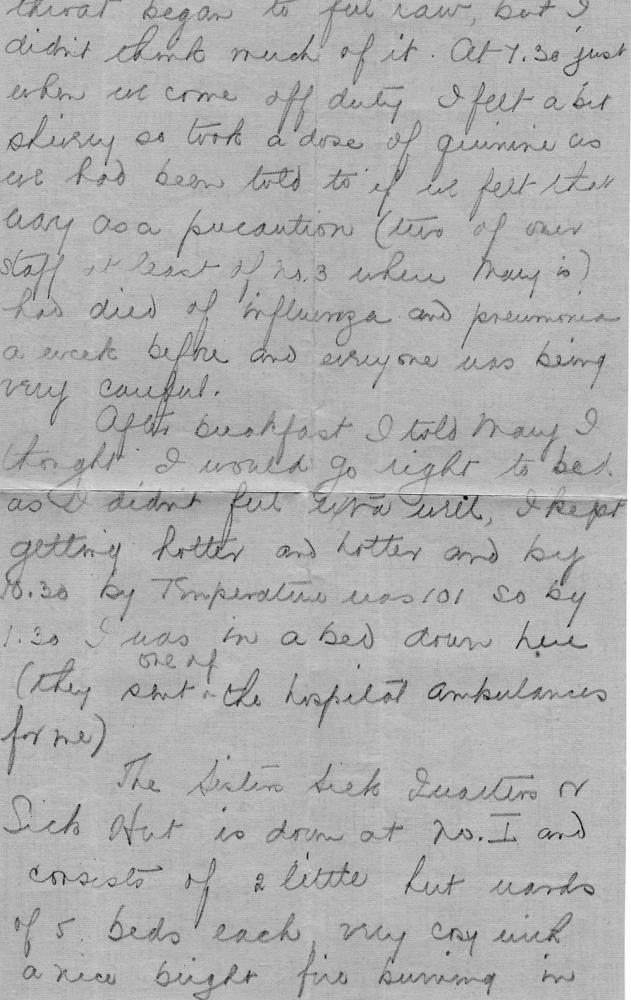 throat began to feel raw, but I
didn't think much of it. At 7.30 just
when we come off duty I felt a bit
shivery so took a dose of quinine as
we had been told to if we felt that
way as a precaution (two of our
staff at least of No. 3 where Mary is)
had died of influenza and pneumonia
a week before and everyone was being
very careful.
After breakfast I told Mary I
thought I would go right to bed.
as I didn't feel extra well, I kept
getting hotter and hotter and by
10.30 by Temperature was 101 so by
1.30 I was in a bed down here
one of
(they sent the hospital ambulances
for me)
The Sisters Sick Quarters or
Sick Hut is down at No. I and
consists of 2 little hut wards
of 5 beds each, very cosy with
a nice bright fire burning in